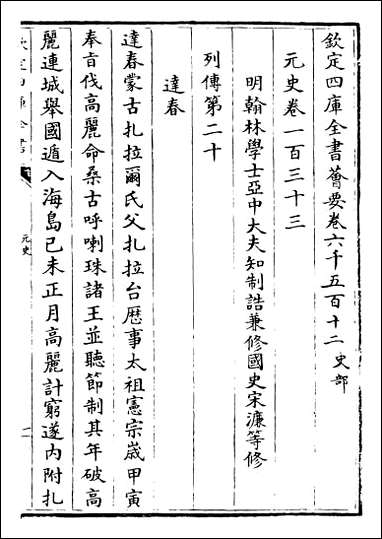 欽定四庫全書薈要卷六千五百十二 史部
元史卷一百三十三
明翰林學士亞中大夫知制誥兼修國史宋濂等修
列傳第二十
達春
達春蒙古扎拉爾氏父扎拉台歷事太祖憲宗歲甲寅
奉㫖伐高麗命桑古呼喇珠諸王並聽節制其年破高
麗連城舉國遁入海島已未正月高麗計窮遂內附扎
元史